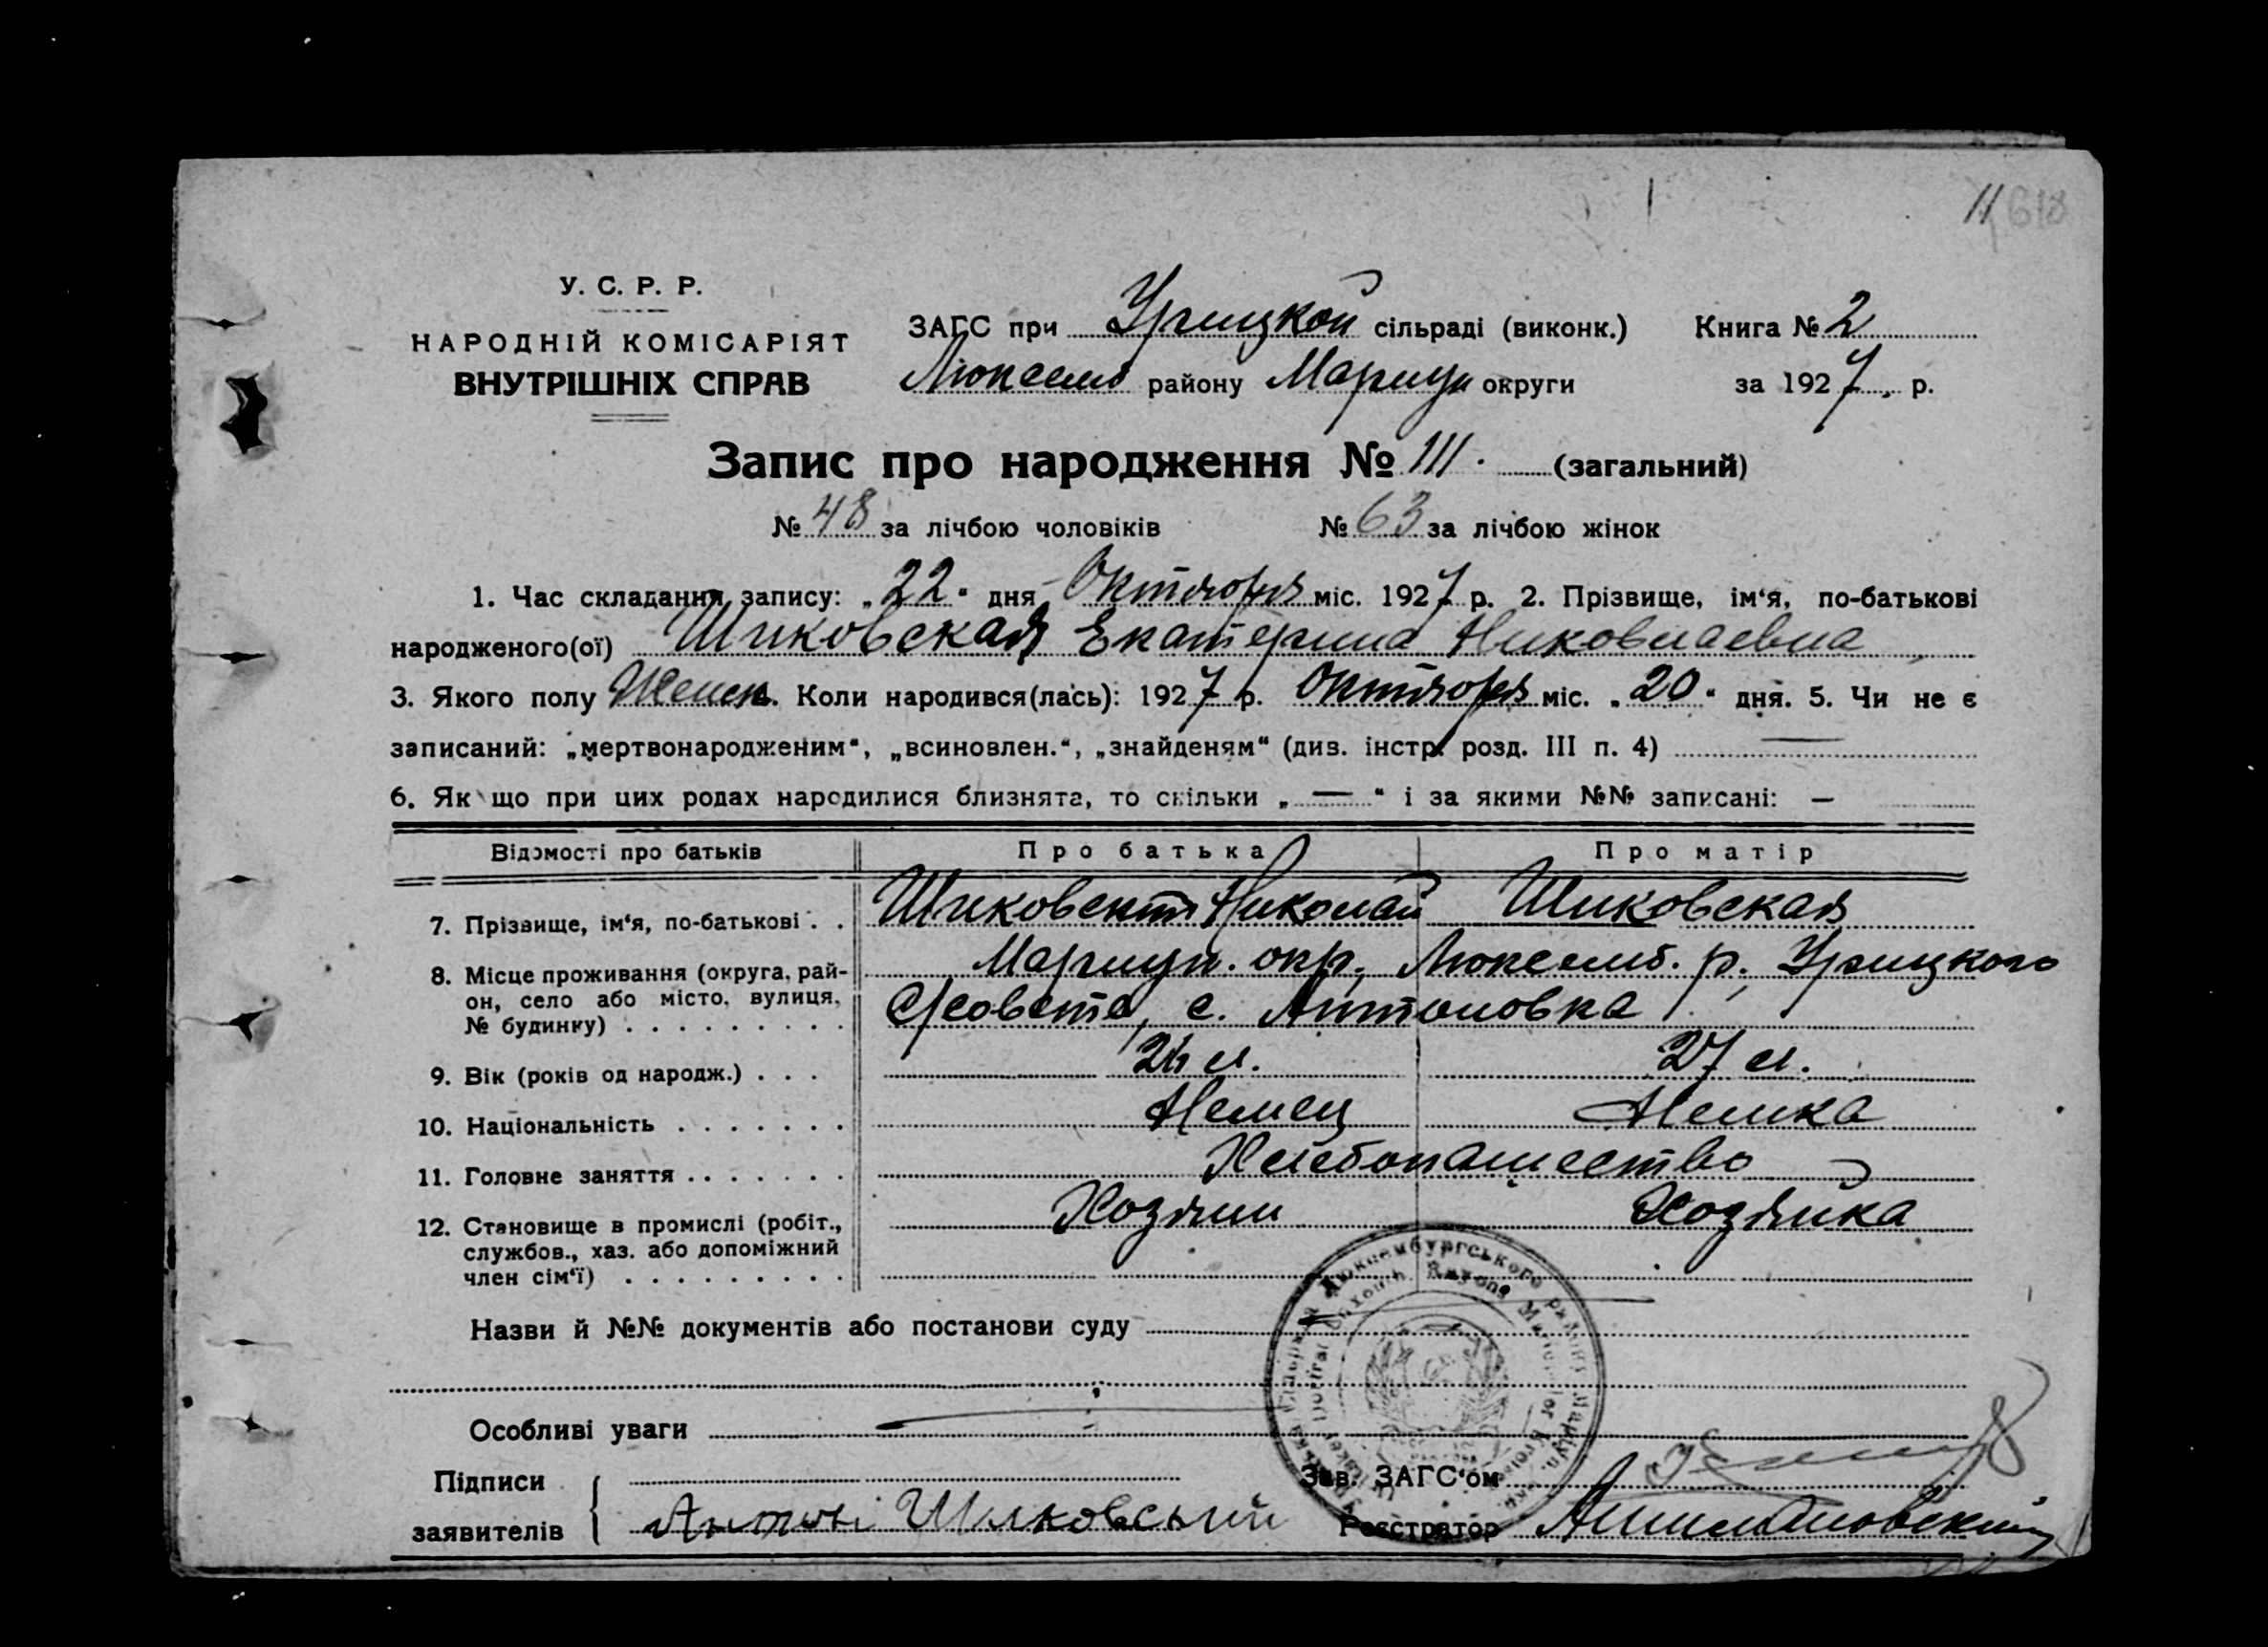 11 618
У. С. Р. Р.
НАРОДНІЙ КОМІСАРІЯТ
ВНУТРІШНІХ СПРАВ
ЗАГС при Урицкой сільраді (виконк.) Книга № 2
Люксемб району Мариуп округи за 1927 р.
Запис про народження № 111. (загальний)
№ 48 за лічбою чоловіків № 63 за лічбою жінок
1. Час складання запису: „22“ дня Октября міс. 1927 р. 2. Прізвище, ім‘я, по-батькові
народженого(ої) Шиковская Екатерина Николаевна
3. Якого полу Женск. Коли народився(лась): 1927 р. Октября міс. „20“ дня. 5. Чи не є
записаний: „мертвонародженим“, „всиновлен.“, „знайденям“ (див. інстр. розд. III п. 4) —
6. Як що при цих родах народилися близнята, то скільки „—“ і за якими №№ записані: —
Відомості про батьків Про батька Про матір
7. Прізвище, ім‘я, по-батькові . . Шиковский Николай Шиковская
8. Місце проживання (округа, рай- Мариуп. окр., Люксемб. р., Урицкого
он, село або місто, вулиця, С/совета, с. Антоновка
№ будинку) . . . . . . . . .
9. Вік (років од народж.) . . . 24 л. 27 л.
10. Національність . . . . . . . Немец Немка
11. Головне заняття . . . . . . . Хлебопашество
12. Становище в промислі (робіт., Хозяин Хозяйка
службов., хаз. або допоміжний
член сім‘ї) . . . . . . . . .
Назви й №№ документів або постанови суду
Особливі уваги
Підписи Зав. ЗАГС‘ом
заявителів Антон Шиковський Реєстратор
Люксембургського району Маріуп.